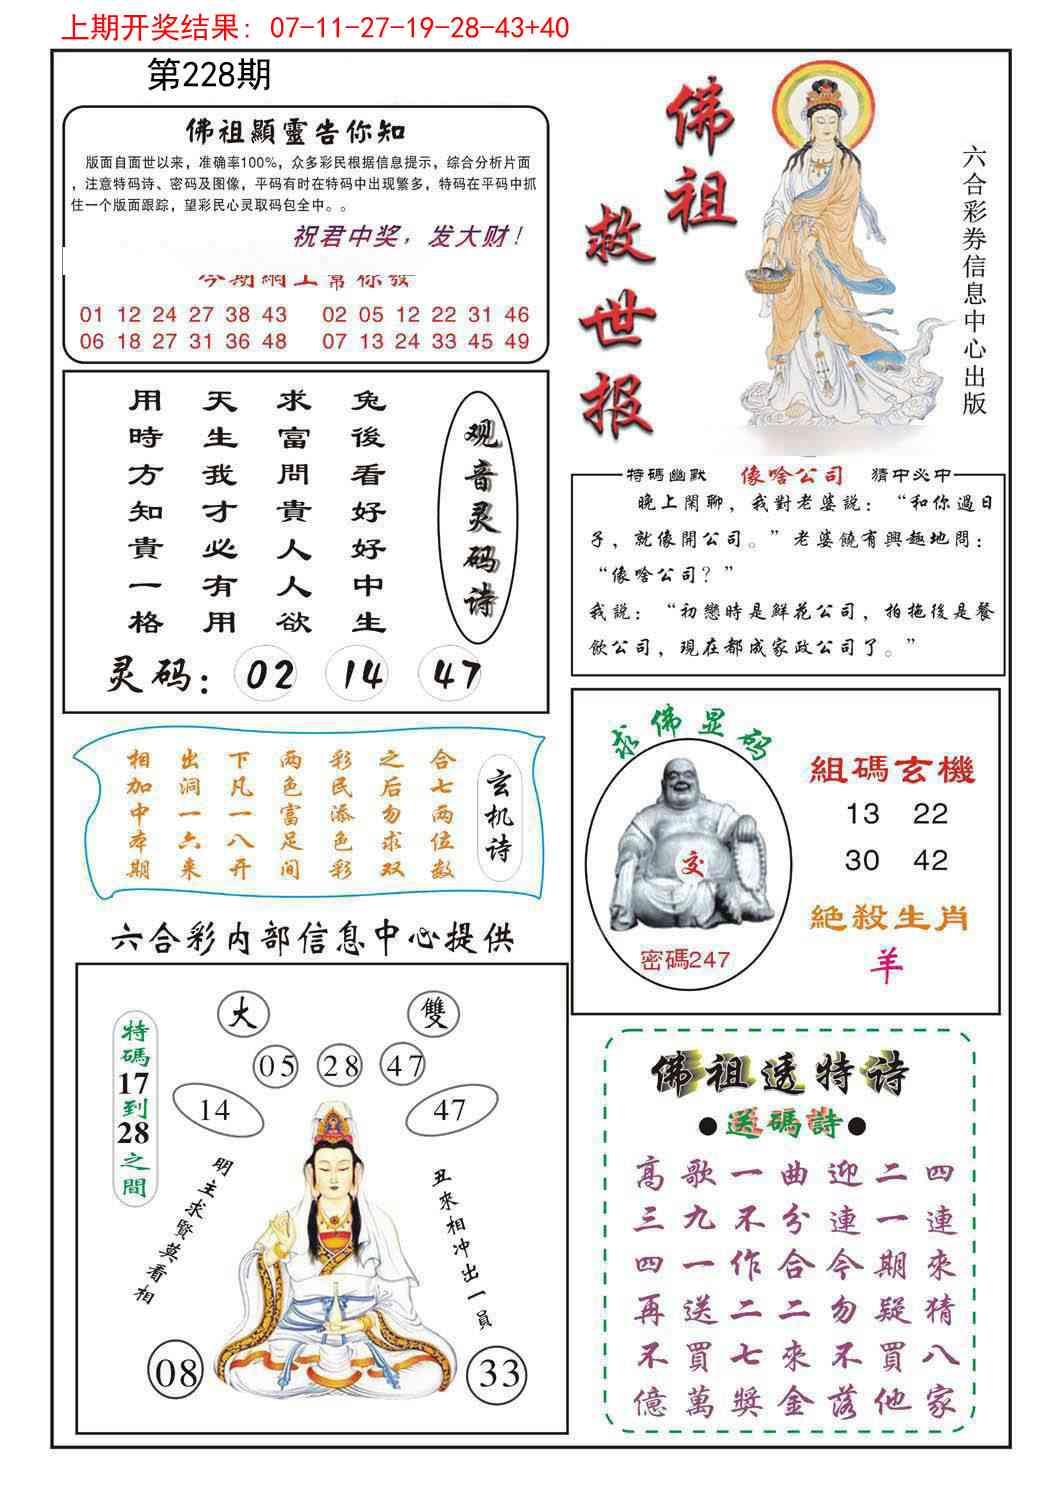 上期开奖结果：07-11-27-19-28-43+40
第228期
佛祖顯靈告你知
版面自面世以来，准确率100%，众多彩民根据信息提示，综合分析片面
，注意特码诗、密码及图像，平码有时在特码中出现繁多，特码在平码中抓
住一个版面跟踪，望彩民心灵取码包全中。。
祝君中奖，发大财！
01 12 24 27 38 43 02 05 12 22 31 46
06 18 27 31 36 48 07 13 24 33 45 49
佛祖
救世报
六合彩券信息中心出版
观音灵码诗
兔後看好好中生
求富問貴人人欲
天生我才必有用
用時方知貴一格
灵码：02 14 47
特碼幽默 像啥公司 猜中必中
晚上閑聊，我對老婆説：“和你過日
子，就像開公司。”老婆饒有興趣地問：
“像啥公司？”
我説：“初戀時是鮮花公司，拍拖後是餐
飲公司，現在都成家政公司了。”
玄机诗
合七两位数
之后勿求双
彩民添色彩
两色富足间
下凡一八开
出洞一六来
相加中本期
求佛显码
交
密碼247
組碼玄機
13 22
30 42
絕殺生肖
羊
六合彩内部信息中心提供
大 雙
05 28 47
14 47
特碼17到28之間
明主求賢莫看相
丑來相冲出一員
08 33
佛祖透特诗
●送碼詩●
高歌一曲迎二四
三九不分連一連
四一作合今期來
再送二二勿疑猜
不買七來不買八
億萬獎金落他家